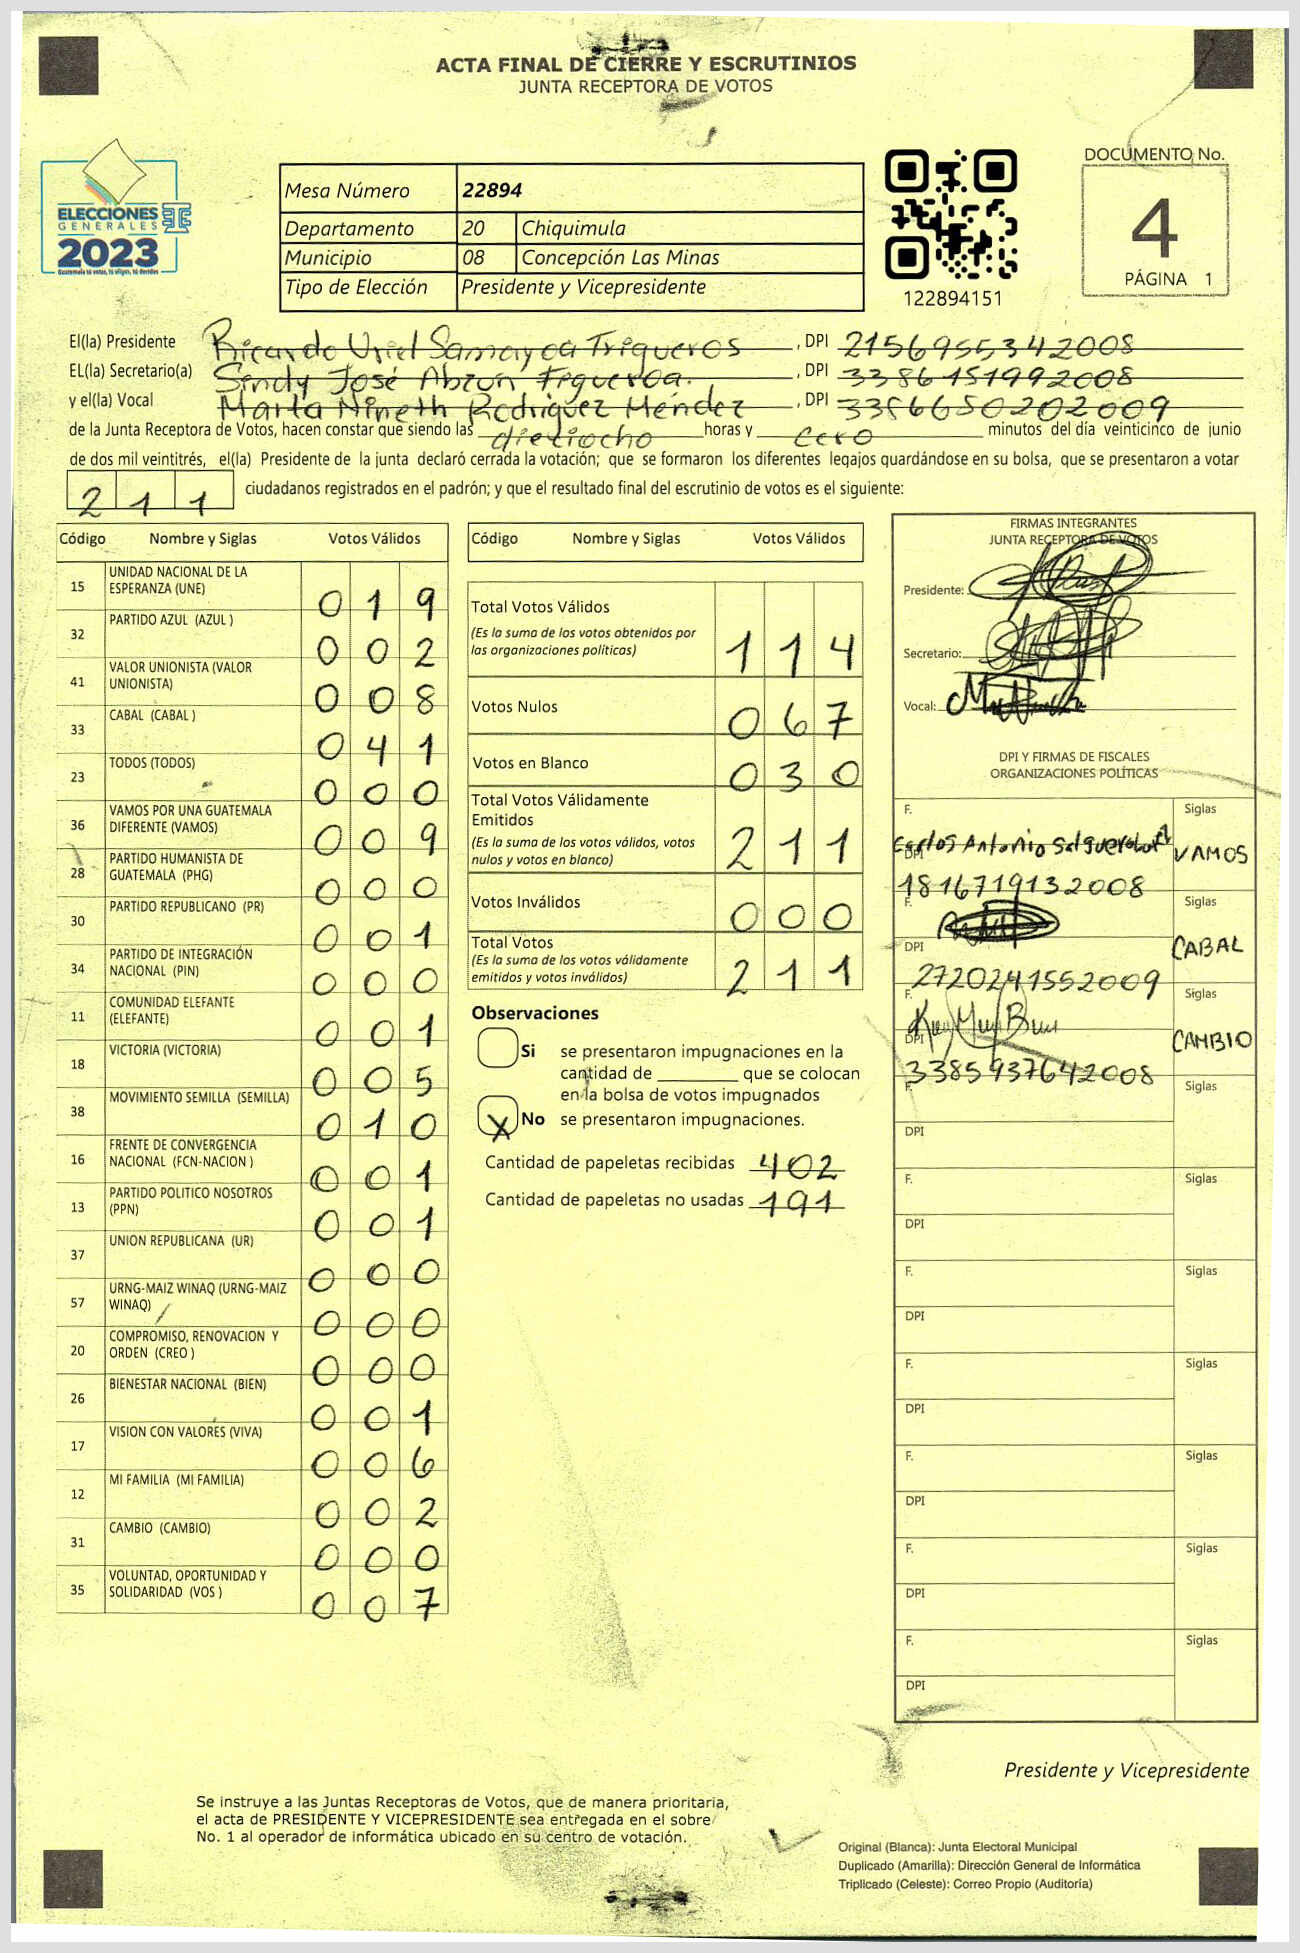 ACTA FINAL DE CIERRE Y ESCRUTINIOS
JUNTA RECEPTORA DE VOTOS
ELECCIONES
GENERALES
2023
Guatemala tú votas, tú eliges, tú decides
Mesa Número 22894
Departamento 20 Chiquimula
Municipio 08 Concepción Las Minas
Tipo de Elección Presidente y Vicepresidente
122894151
DOCUMENTO No.
4
PÁGINA 1
El(la) Presidente Ricardo Uriel Samayoa Trigueros, DPI 2156955342008
EL(la) Secretario(a) Sindy José Abzun Figueroa., DPI 3386151992008
y el(la) Vocal Marta Nineth Rodriguez Méndez, DPI 3386650202009
de la Junta Receptora de Votos, hacen constar que siendo las dieciocho horas y cero minutos del día veinticinco de junio
de dos mil veintitrés, el(la) Presidente de la junta declaró cerrada la votación; que se formaron los diferentes legajos quardándose en su bolsa, que se presentaron a votar
211 ciudadanos registrados en el padrón; y que el resultado final del escrutinio de votos es el siguiente:
Código Nombre y Siglas Votos Válidos
15 UNIDAD NACIONAL DE LA ESPERANZA (UNE) 019
32 PARTIDO AZUL (AZUL ) 002
41 VALOR UNIONISTA (VALOR UNIONISTA) 008
33 CABAL (CABAL ) 041
23 TODOS (TODOS) 000
36 VAMOS POR UNA GUATEMALA DIFERENTE (VAMOS) 009
28 PARTIDO HUMANISTA DE GUATEMALA (PHG) 000
30 PARTIDO REPUBLICANO (PR) 001
34 PARTIDO DE INTEGRACIÓN NACIONAL (PIN) 000
11 COMUNIDAD ELEFANTE (ELEFANTE) 001
18 VICTORIA (VICTORIA) 005
38 MOVIMIENTO SEMILLA (SEMILLA) 010
16 FRENTE DE CONVERGENCIA NACIONAL (FCN-NACION ) 001
13 PARTIDO POLITICO NOSOTROS (PPN) 001
37 UNION REPUBLICANA (UR) 000
57 URNG-MAIZ WINAQ (URNG-MAIZ WINAQ) 000
20 COMPROMISO, RENOVACION Y ORDEN (CREO ) 000
26 BIENESTAR NACIONAL (BIEN) 001
17 VISION CON VALORES (VIVA) 006
12 MI FAMILIA (MI FAMILIA) 002
31 CAMBIO (CAMBIO) 000
35 VOLUNTAD, OPORTUNIDAD Y SOLIDARIDAD (VOS ) 007
Código Nombre y Siglas Votos Válidos
Total Votos Válidos 114
(Es la suma de los votos obtenidos por
las organizaciones políticas)
Votos Nulos 067
Votos en Blanco 030
Total Votos Válidamente
Emitidos 211
(Es la suma de los votos válidos, votos
nulos y votos en blanco)
Votos Inválidos 000
Total Votos 211
(Es la suma de los votos válidamente
emitidos y votos inválidos)
Observaciones
Si se presentaron impugnaciones en la
cantidad de ________ que se colocan
en la bolsa de votos impugnados
X No se presentaron impugnaciones.
Cantidad de papeletas recibidas 402
Cantidad de papeletas no usadas 191
FIRMAS INTEGRANTES
JUNTA RECEPTORA DE VOTOS
Presidente:
Secretario:
Vocal:
DPI Y FIRMAS DE FISCALES
ORGANIZACIONES POLÍTICAS
F. Carlos Antonio Siglas VAMOS
DPI 1816719132008
F. Siglas CABAL
DPI 2720241552009
F. Siglas CAMBIO
DPI 3385937642008
F. Siglas
DPI
F. Siglas
DPI
F. Siglas
DPI
F. Siglas
DPI
F. Siglas
DPI
F. Siglas
DPI
F. Siglas
DPI
Presidente y Vicepresidente
Se instruye a las Juntas Receptoras de Votos, que de manera prioritaria,
el acta de PRESIDENTE Y VICEPRESIDENTE sea entregada en el sobre
No. 1 al operador de informática ubicado en su centro de votación.
Original (Blanca): Junta Electoral Municipal
Duplicado (Amarilla): Dirección General de Informática
Triplicado (Celeste): Correo Propio (Auditoría)